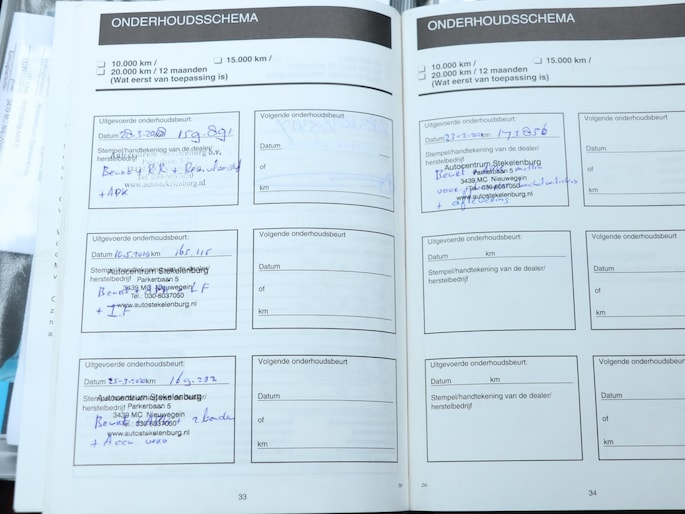 ONDERHOUDSSCHEMA
10.000 km /
15.000 km /
20.000 km / 12 maanden
(Wat eerst van toepassing is)
Uitgevoerde onderhoudsbeurt:
Datum 28-3-2018 159.891
Stempel/handtekening van de dealer/
herstelbedrijf
Stekelenburg b.v.
www.autostekelenburg.nl
+ APK
Volgende onderhoudsbeurt
Datum
of
km
Uitgevoerde onderhoudsbeurt:
Datum 10-5-2019 km 165.115
Stempel/handtekening van de dealer/
herstelbedrijf
Autocentrum Stekelenburg
Parkerbaan 5
3439 MC Nieuwegein
Tel.: 030-6037050
www.autostekelenburg.nl
Volgende onderhoudsbeurt
Datum
of
km
Uitgevoerde onderhoudsbeurt:
Datum km 169.232
Stempel/handtekening van de dealer/
herstelbedrijf
Autocentrum Stekelenburg
Parkerbaan 5
3439 MC Nieuwegein
Tel.: 030-6037050
www.autostekelenburg.nl
Volgende onderhoudsbeurt
Datum
of
km
33
ONDERHOUDSSCHEMA
10.000 km /
15.000 km /
20.000 km / 12 maanden
(Wat eerst van toepassing is)
Uitgevoerde onderhoudsbeurt:
Datum km 173856
Stempel/handtekening van de dealer/
herstelbedrijf
Autocentrum Stekelenburg
Parkerbaan 5
3439 MC Nieuwegein
Tel.: 030-6037050
www.autostekelenburg.nl
+ aflevering
Volgende
Datum
of
km
Uitgevoerde onderhoudsbeurt:
Datum km
Stempel/handtekening van de dealer/
herstelbedrijf
Volgende
Datum
of
km
Uitgevoerde onderhoudsbeurt:
Datum km
Stempel/handtekening van de dealer/
herstelbedrijf
Volgende
Datum
of
km
34